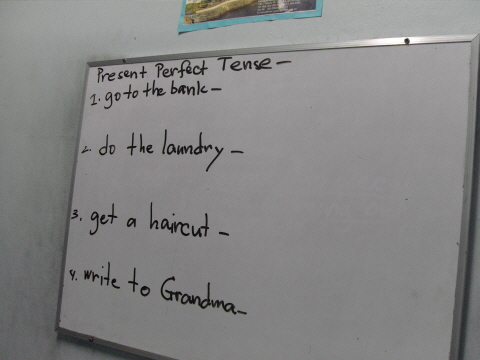 Present Perfect Tense -
1. go to the bank -
2. do the laundry -
3. get a haircut -
4. write to Grandma -